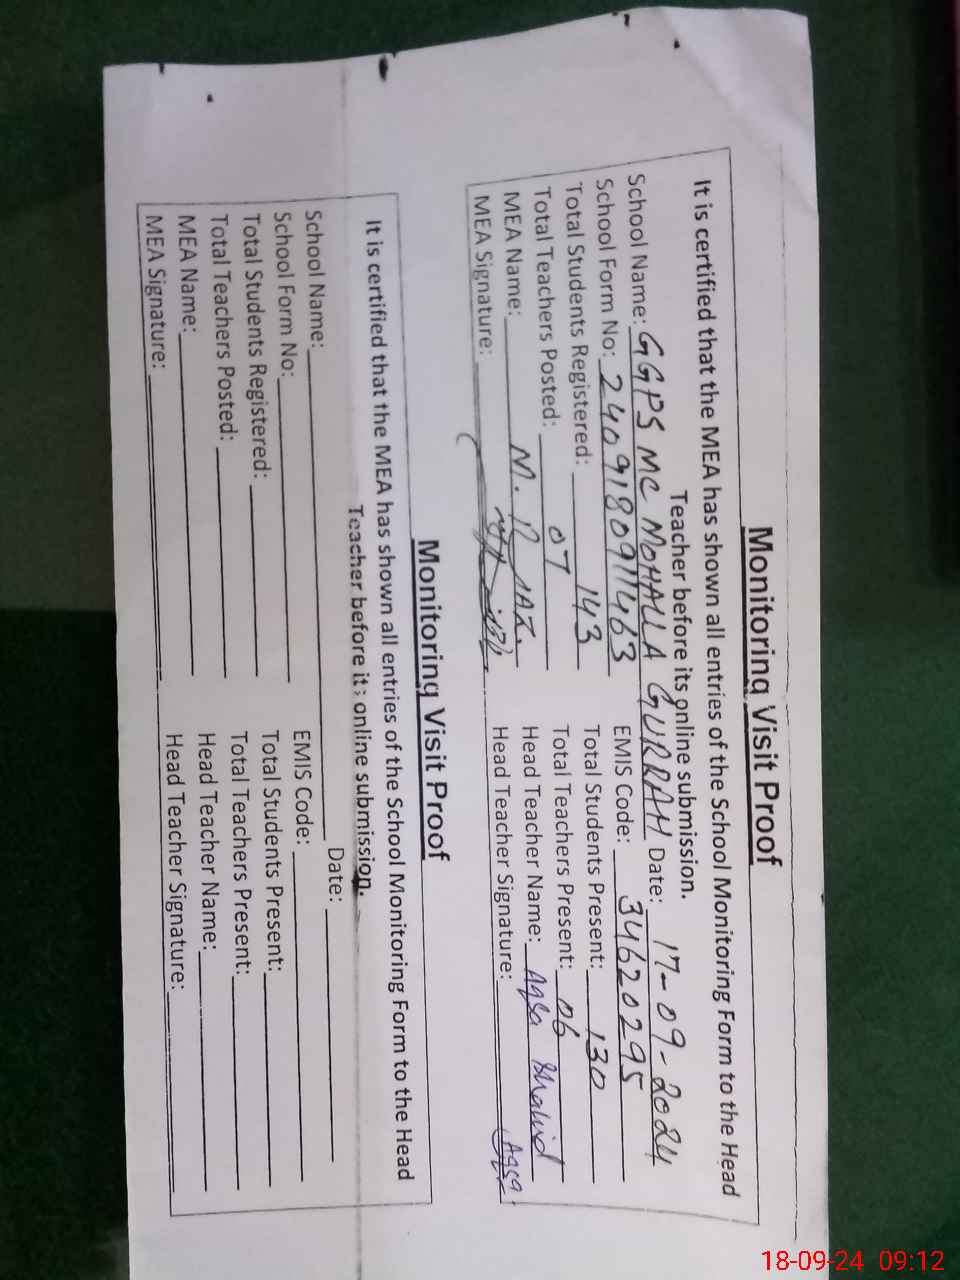 Monitoring Visit Proof
It is certified that the MEA has shown all entries of the School Monitoring Form to the Head
Teacher before its online submission.
School Name: GGPS MC MOHALLA GURRAH Date: 17-09-2024
School Form No: 2409180911463 EMIS Code: 34620295
Total Students Registered: 143 Total Students Present: 130
Total Teachers Posted: 07 Total Teachers Present: 06
MEA Name: M. Head Teacher Name: Aqsa
MEA Signature: Head Teacher Signature: Aqsa
Monitoring Visit Proof
It is certified that the MEA has shown all entries of the School Monitoring Form to the Head
Teacher before its online submission.
School Name: Date:
School Form No: EMIS Code:
Total Students Registered: Total Students Present:
Total Teachers Posted: Total Teachers Present:
MEA Name: Head Teacher Name:
MEA Signature: Head Teacher Signature:
18-09-24 09:12